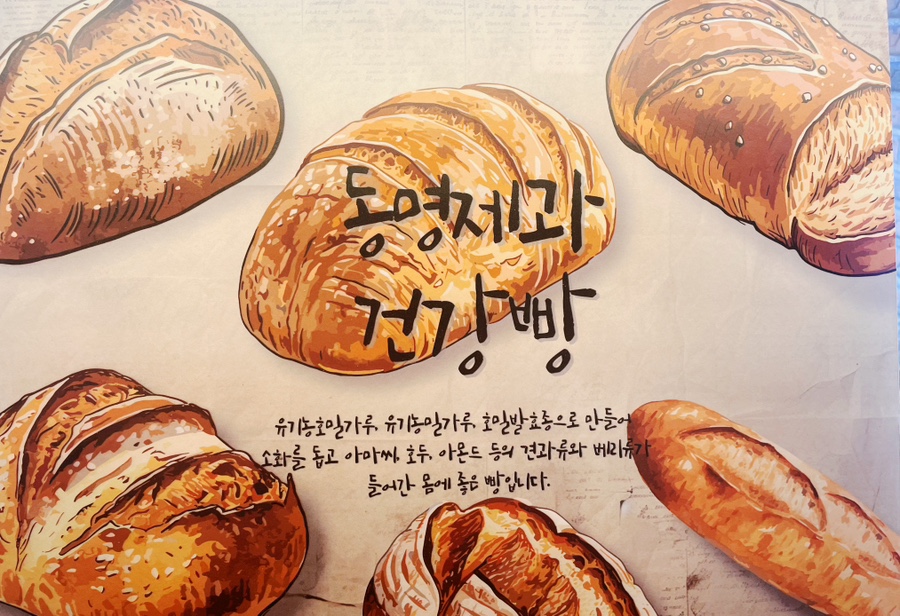 동명제과
건강빵
유기농호밀가루, 유기농밀가루, 호밀발효종으로 만들어
소화를 돕고 아마씨, 호두, 아몬드 등의 견과류와 베리류가
들어간 몸에 좋은 빵입니다.